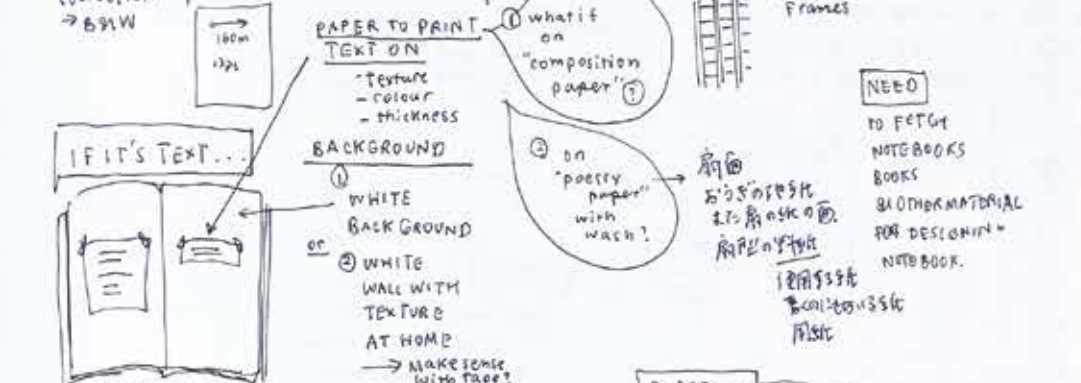 → B&W
160m
IF IT'S TEXT...
PAPER TO PRINT
TEXT ON
- texture
- colour
- thickness
BACKGROUND
①
WHITE
BACKGROUND
or
② WHITE
WALL WITH
TEXTURE
AT HOME
→ Make sense
with tape?
① what if
on
"composition
paper"?
② on
"poetry
paper"
with
wash?
→ 扇面
また扇の
使用する紙
用紙
Frames
NEED
TO FETCH
NOTEBOOKS
BOOKS
& OTHER MATERIAL
FOR DESIGNING
NOTEBOOK.